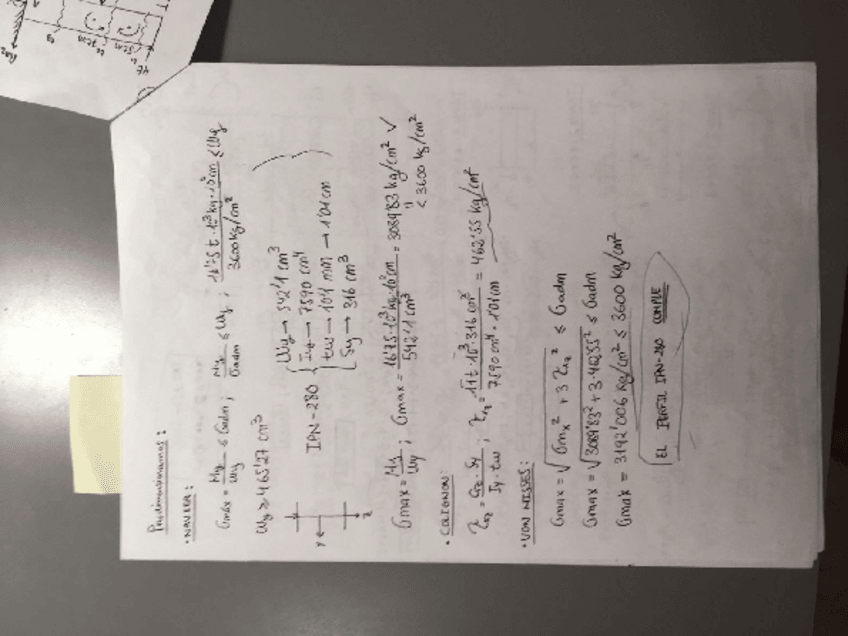 Predimensionamos:
• NAVIER:
σmáx = My/Wy ≤ σadm ; My/σadm ≤ Wy ; 16'75 t·10³kg·10²cm / 3600 kg/cm² ≤ Wy
Wy ≥ 465'27 cm³
IPN-280
Wy → 542'1 cm³
Iy → 7590 cm⁴
tw → 10'1 mm → 1'01 cm
Sy → 316 cm³
y
z
σmax = My/Wy ; σmax = 16'75·10³kg·10²cm / 542'1 cm³ = 3089'83 kg/cm² ✓
< 3600 kg/cm²
• COLIGNON:
τxz = Qz·Sy / Iy·tw ; τxz = 11t·10³·316 cm³ / 7590 cm⁴·1'01cm = 462'55 kg/cm²
• VON MISSES:
σmax = √(σmx² + 3τxz²) ≤ σadm
σmax = √(3089'83² + 3·462'55²) ≤ σadm
σmax = 3192'006 kg/cm² ≤ 3600 kg/cm²
EL PERFIL IPN-280 CUMPLE